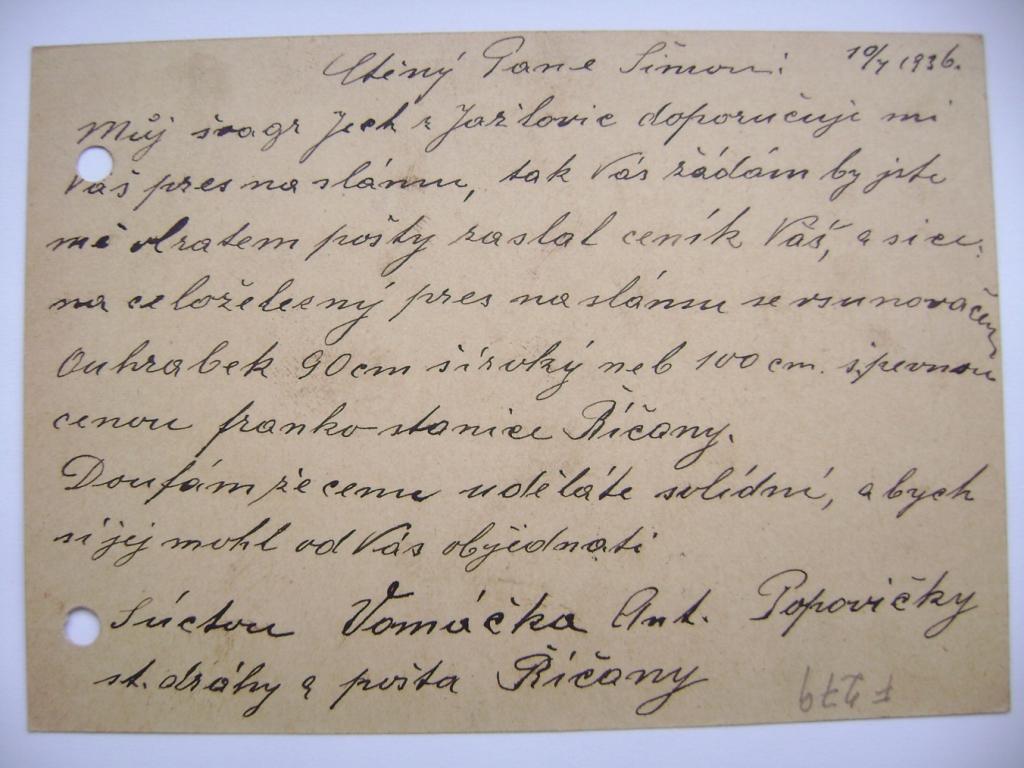 Ctěný Pane Šimon: 10/7 1936.
Můj švagr Jech z Jažlovic doporučuje mi
Váš pres na slámu, tak Vás žádám by jste
mě obratem pošty zaslal ceník Váš, a sice:
na celoželesný pres na slámu se vsunovačem
Ouhrabek 90 cm široký neb 100 cm. s pevnou
cenou franko stanice Říčany.
Doufám že cenu uděláte solidní, abych
si jej mohl od Vás objednati
S úctou Vomáčka Ant. Popovičky
st. dráhy a pošta Říčany
F 279